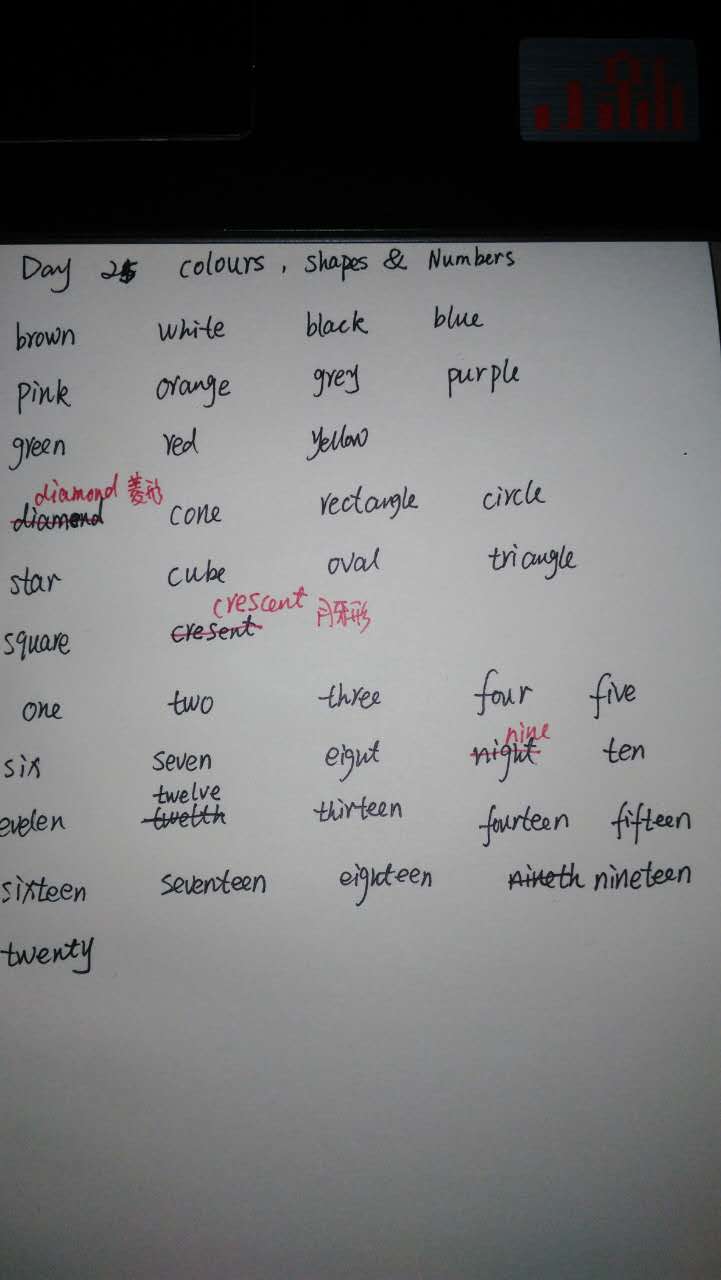 Day 25 colours, shapes & Numbers
brown white black blue
pink orange grey purple
green red yellow
diamond 菱形
diamond cone rectangle circle
star cube oval triangle
crescent 月牙形
square cresent
one two three four five
nine
six seven eight night ten
twelve
evelen twelth thirteen fourteen fifteen
sixteen seventeen eighteen nineth nineteen
twenty